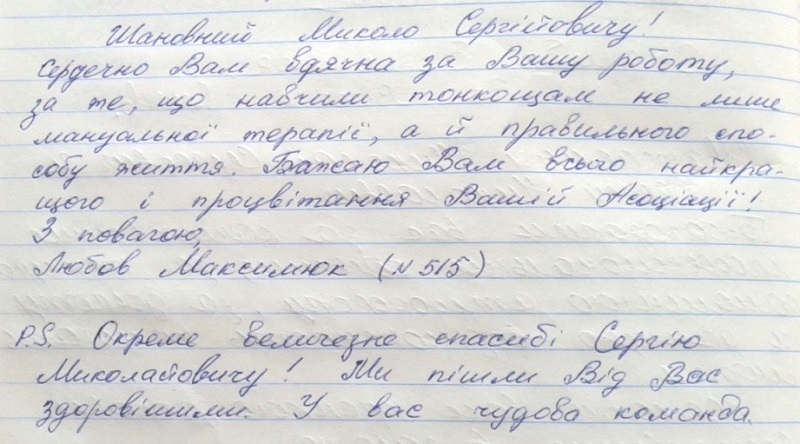 Шановний Миколо Сергійовичу!
Сердечно Вам вдячна за Вашу роботу,
за те, що навчили тонкощам не лише
мануальної терапії, а й правильного спо-
собу життя. Бажаю Вам всього найкра-
щого і процвітання Вашій Асоціації!
З повагою,
Любов Максимюк (N 515)
P.S. Окреме величезне спасибі Сергію
Миколайовичу! Ми пішли від Вас
здоровішими. У вас чудова команда.